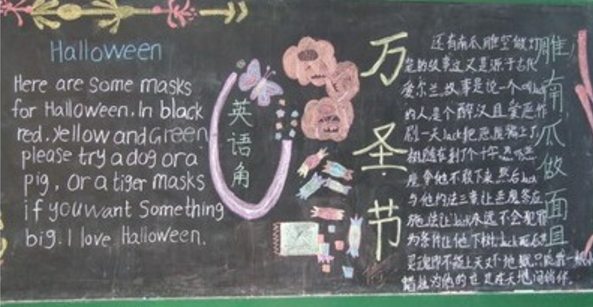 Halloween
Here are Some masks
for Halloween. In black
red. Yellow and Green
please try a dog or a
pig, Or a tiger masks
if you want Something
big. I love Halloween.
英语角
万圣节
还有南瓜雕空做灯
笼的故事这又是源于古代
爱尔兰故事是说一个
的人是个醉汉且爱恶作
剧一天Jack把恶魔骗上了
树随在树
魔拿他不敢下来然后
与他约法三章让恶魔答应
施法让Jack永远不会犯罪
为条件让他下树
灵魂既不能上天又不
蜡烛为他
雕南瓜做面具